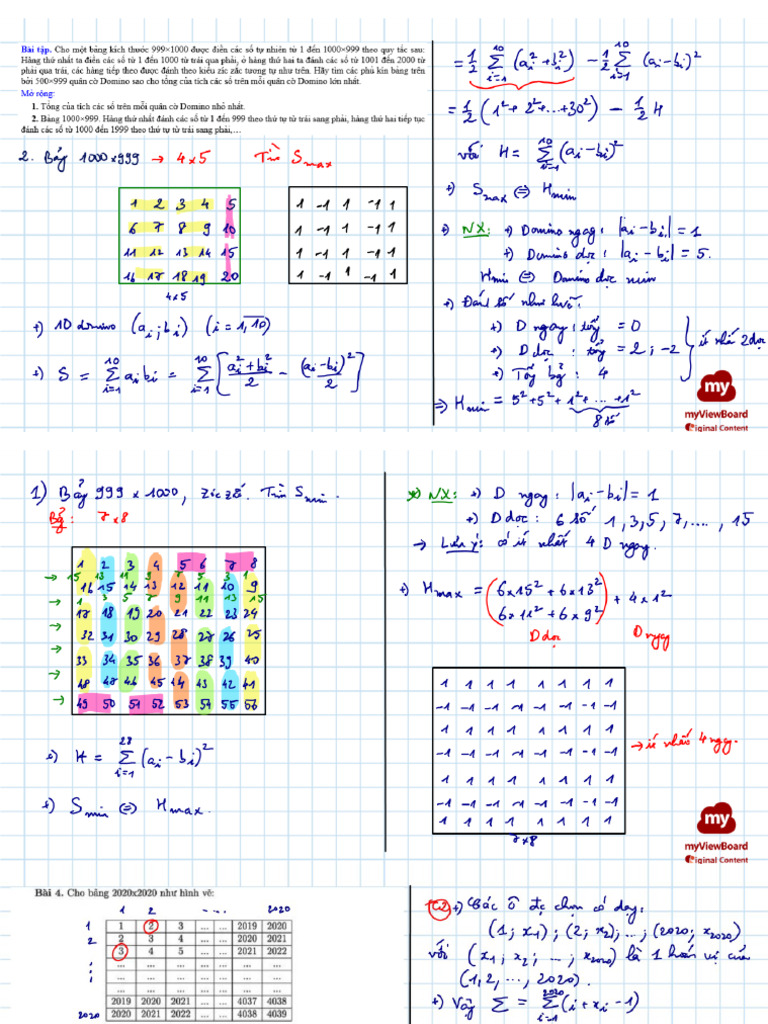 Bài tập. Cho một bảng kích thước 999×1000 được điền các số tự nhiên từ 1 đến 1000×999 theo quy tắc sau:
Hàng thứ nhất ta điền các số từ 1 đến 1000 từ trái qua phải, ở hàng thứ hai ta đánh các số từ 1001 đến 2000 từ
phải qua trái, các hàng tiếp theo được đánh theo kiểu zíc zắc tương tự như trên. Hãy tìm các phủ kín bảng trên
bởi 500×999 quân cờ Domino sao cho tổng của tích các số trên mỗi quân cờ Domino lớn nhất.
Mở rộng:
1. Tổng của tích các số trên mỗi quân cờ Domino nhỏ nhất.
2. Bảng 1000×999. Hàng thứ nhất đánh các số từ 1 đến 999 theo thứ tự từ trái sang phải, hàng thứ hai tiếp tục
đánh các số từ 1000 đến 1999 theo thứ tự từ trái sang phải,…
2. Bảng 1000×999 → 4×5 Tìm S max
1 2 3 4 5
6 7 8 9 10
11 12 13 14 15
16 17 18 19 20
4×5
1 -1 1 -1 1
1 -1 1 -1 1
1 -1 1 -1 1
1 -1 1 -1 1
+) 10 domino (ai; bi) (i = 1,10)
+) S = Σ i=1 10 ai bi = Σ i=1 10 [(ai² + bi²)/2 - (ai - bi)²/2]
= 1/2 Σ i=1 10 (ai² + bi²) - 1/2 Σ i=1 10 (ai - bi)²
= 1/2 (1² + 2² + ... + 30²) - 1/2 H
với H = Σ i=1 10 (ai - bi)²
+) S max ⇔ H min
+) NX: +) Domino ngag: |ai - bi| = 1
+) Domino dọc: |ai - bi| = 5.
H min ⇔ Domino dọc min
+) Đánh số như hình:
+) D ngag: tổng = 0
+) D dọc: tổng = 2; -2
+) Tổng bg: 4
ít nhất 2 dọc
⇒ H min = 5² + 5² + 1² + ... + 1²
8 số
my
myViewBoard
Original Content
1) Bảng 999 × 1000, zíc zắc. Tìm S min.
Bg: 7×8
1 2 3 4 5 6 7 8
15 13 11 9 7 5 3 1
16 15 14 13 12 11 10 9
1 3 5 7 9 11 13 15
17 18 19 20 21 22 23 24
32 31 30 29 28 27 26 25
33 34 35 36 37 38 39 40
48 47 46 45 44 43 42 41
49 50 51 52 53 54 55 56
+) H = Σ i=1 28 (ai - bi)²
+) S min ⇔ H max.
*) NX: +) D ngag: |ai - bi| = 1
+) D dọc: 6 số 1, 3, 5, 7, ..., 15
→ Lưu ý: có ít nhất 4 D ngag.
+) H max = (6×15² + 6×13² 6×11² + 6×9²) + 4×1²
D dọc D ngag
1 1 1 1 1 1 1 1
-1 -1 -1 -1 -1 -1 -1 -1
1 1 1 1 1 1 1 1
-1 -1 -1 -1 -1 -1 -1 -1
1 1 1 1 1 1 1 1
-1 -1 -1 -1 -1 -1 -1 -1
1 1 1 1 1 1 1 1
7×8
→ ít nhất 4 ngag.
my
myViewBoard
Original Content
Bài 4. Cho bảng 2020x2020 như hình vẽ:
1 2 .... 2020
1 1 2 3 ... ... 2019 2020
2 2 3 4 ... ... 2020 2021
3 4 5 ... ... 2021 2022
... ... ... ... ... ... ...
... ... ... ... ... ... ...
... ... ... ... ... ... ...
2019 2020 2021 ... ... 4037 4038
2020 2020 2021 2022 ... ... 4038 4039
C2 +) Các ô đc chọn có dạng:
(1; x1); (2; x2); ...; (2020; x2020)
với (x1; x2; ...; x2020) là 1 hoán vị của
(1, 2, ..., 2020).
+) Vậy Σ = Σ i=1 2020 (i + xi - 1)